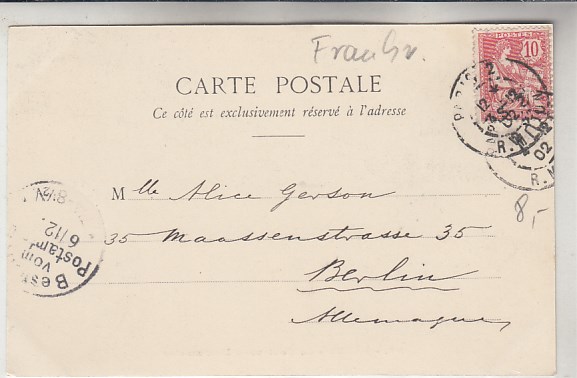 Frankr.
POSTES
10
CARTE POSTALE
Ce côté est exclusivement réservé à l'adresse
PARIS
02
02
R.
8,-
Mlle Alice Gerson
35 Maassenstrasse 35
Berlin
Allemagne
Best
vom
Postamt
6/12